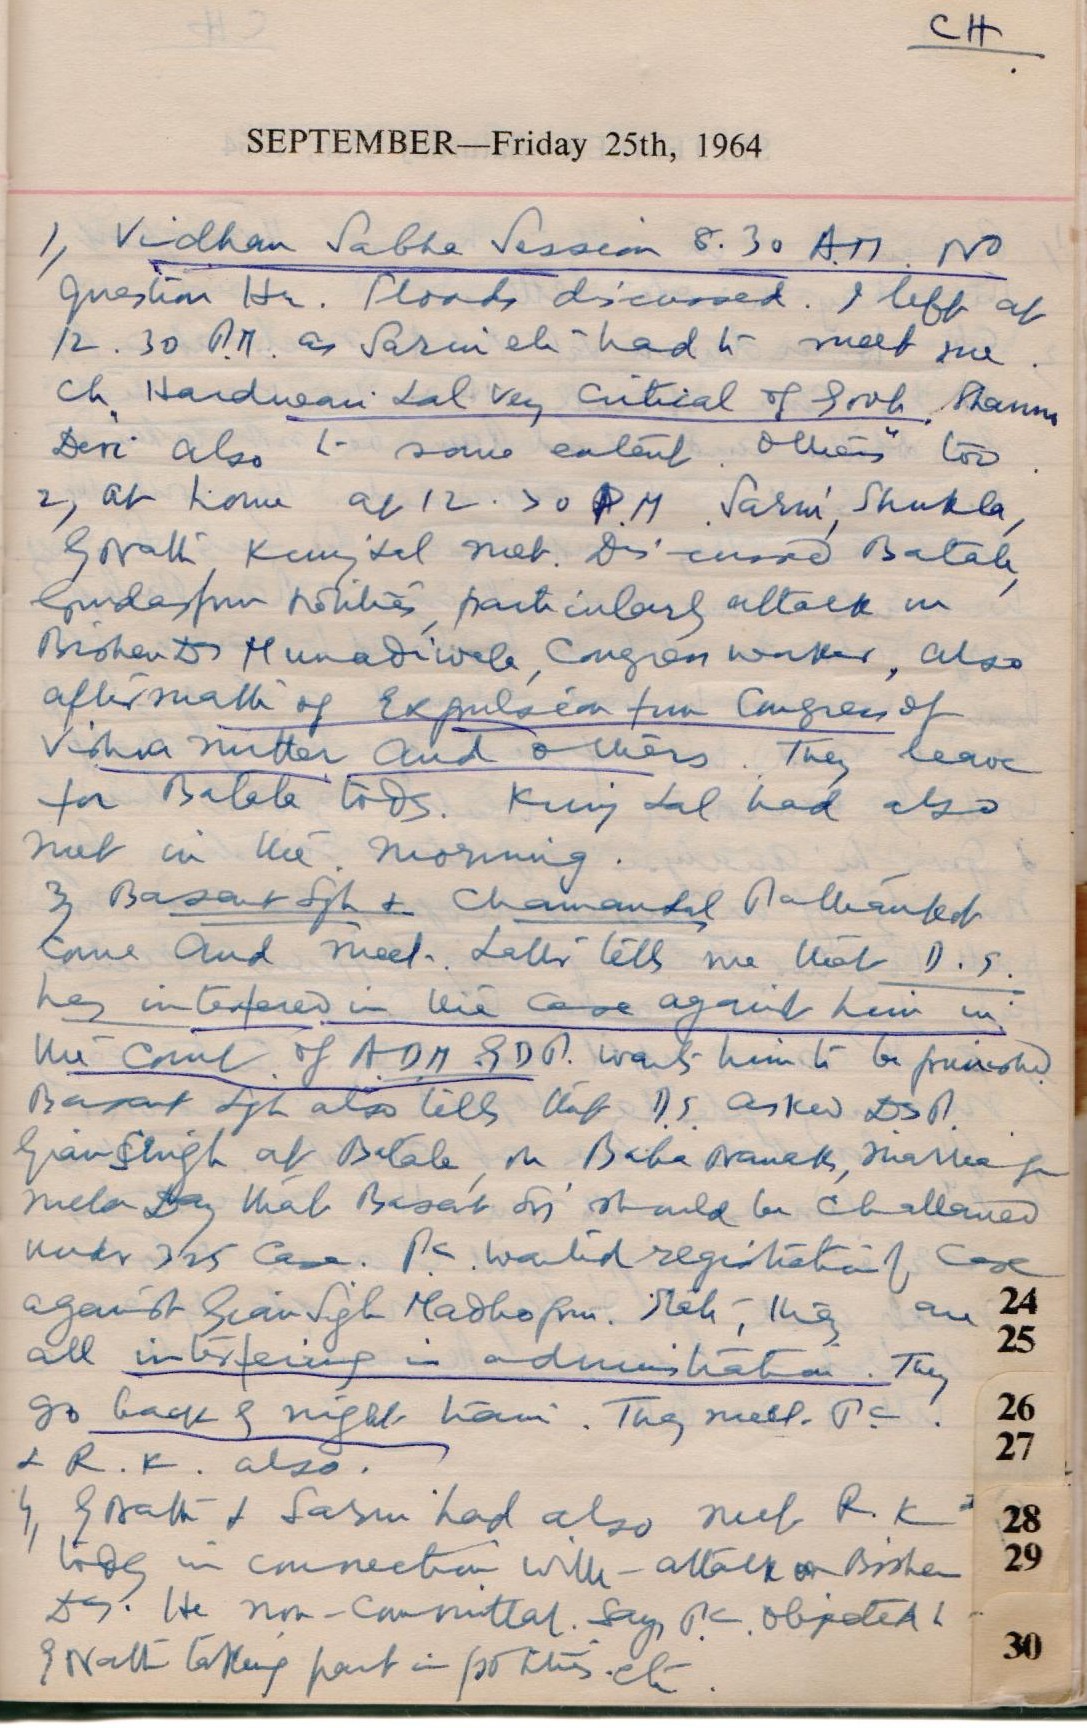 CH
SEPTEMBER—Friday 25th, 1964
1, Vidhan Sabha Session 8.30 A.M. No
question Hr. Floods discussed. I left at
12.30 P.M. as Sarin etc had to meet me.
Ch. Hardwari Lal very critical of Govt. Shanno
Devi also to some extent. Others too.
2, At home at 12.30 P.M. Sarin, Shukla,
G Nath, Kunj Lal met. Discussed Batala,
Gurdaspur politics, particularly attack on
Bishen Ds Munadiwala, Congress worker, also
aftermath of Expulsion from Congress of
Vishwa Mitter and others. They leave
for Batala tody. Kunj Lal had also
met in the morning.
3, Basant Sgh & Chaman Lal Pathankot
come and meet. Latter tells me that D.S.
has interfered in the case against him in
the court of A.D.M. GDP. wants him to be punished
Basant Sgh also tells that D.S. asked DSP.
Gian Singh at Batala, on Baba Nanak, marriage
mela Day that Basant Sgh should be challaned
under 325 case. P.C. wanted registration of case
against Gian Sgh Madhopur. they are
all interfering in administration. They
go back by night train. They meet P.C.
& R.K. also.
4, G Nath & Sarin had also met R.K
tody in connection with attack on Bishen
Ds. He non-committal. Says P.C. objected to
G Nath taking part in politics etc.
24
25
26
27
28
29
30